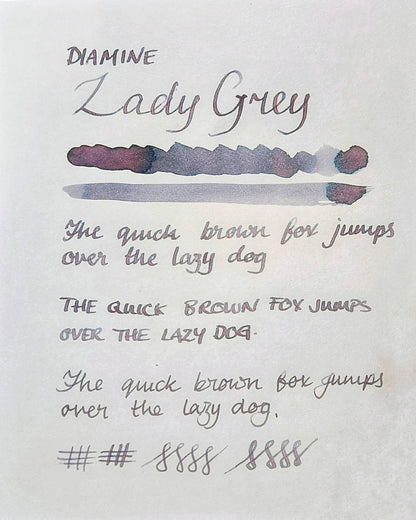 DIAMINE
Lady Grey
The quick brown fox jumps
over the lazy dog
THE QUICK BROWN FOX JUMPS
OVER THE LAZY DOG.
The quick brown fox jumps
over the lazy dog.